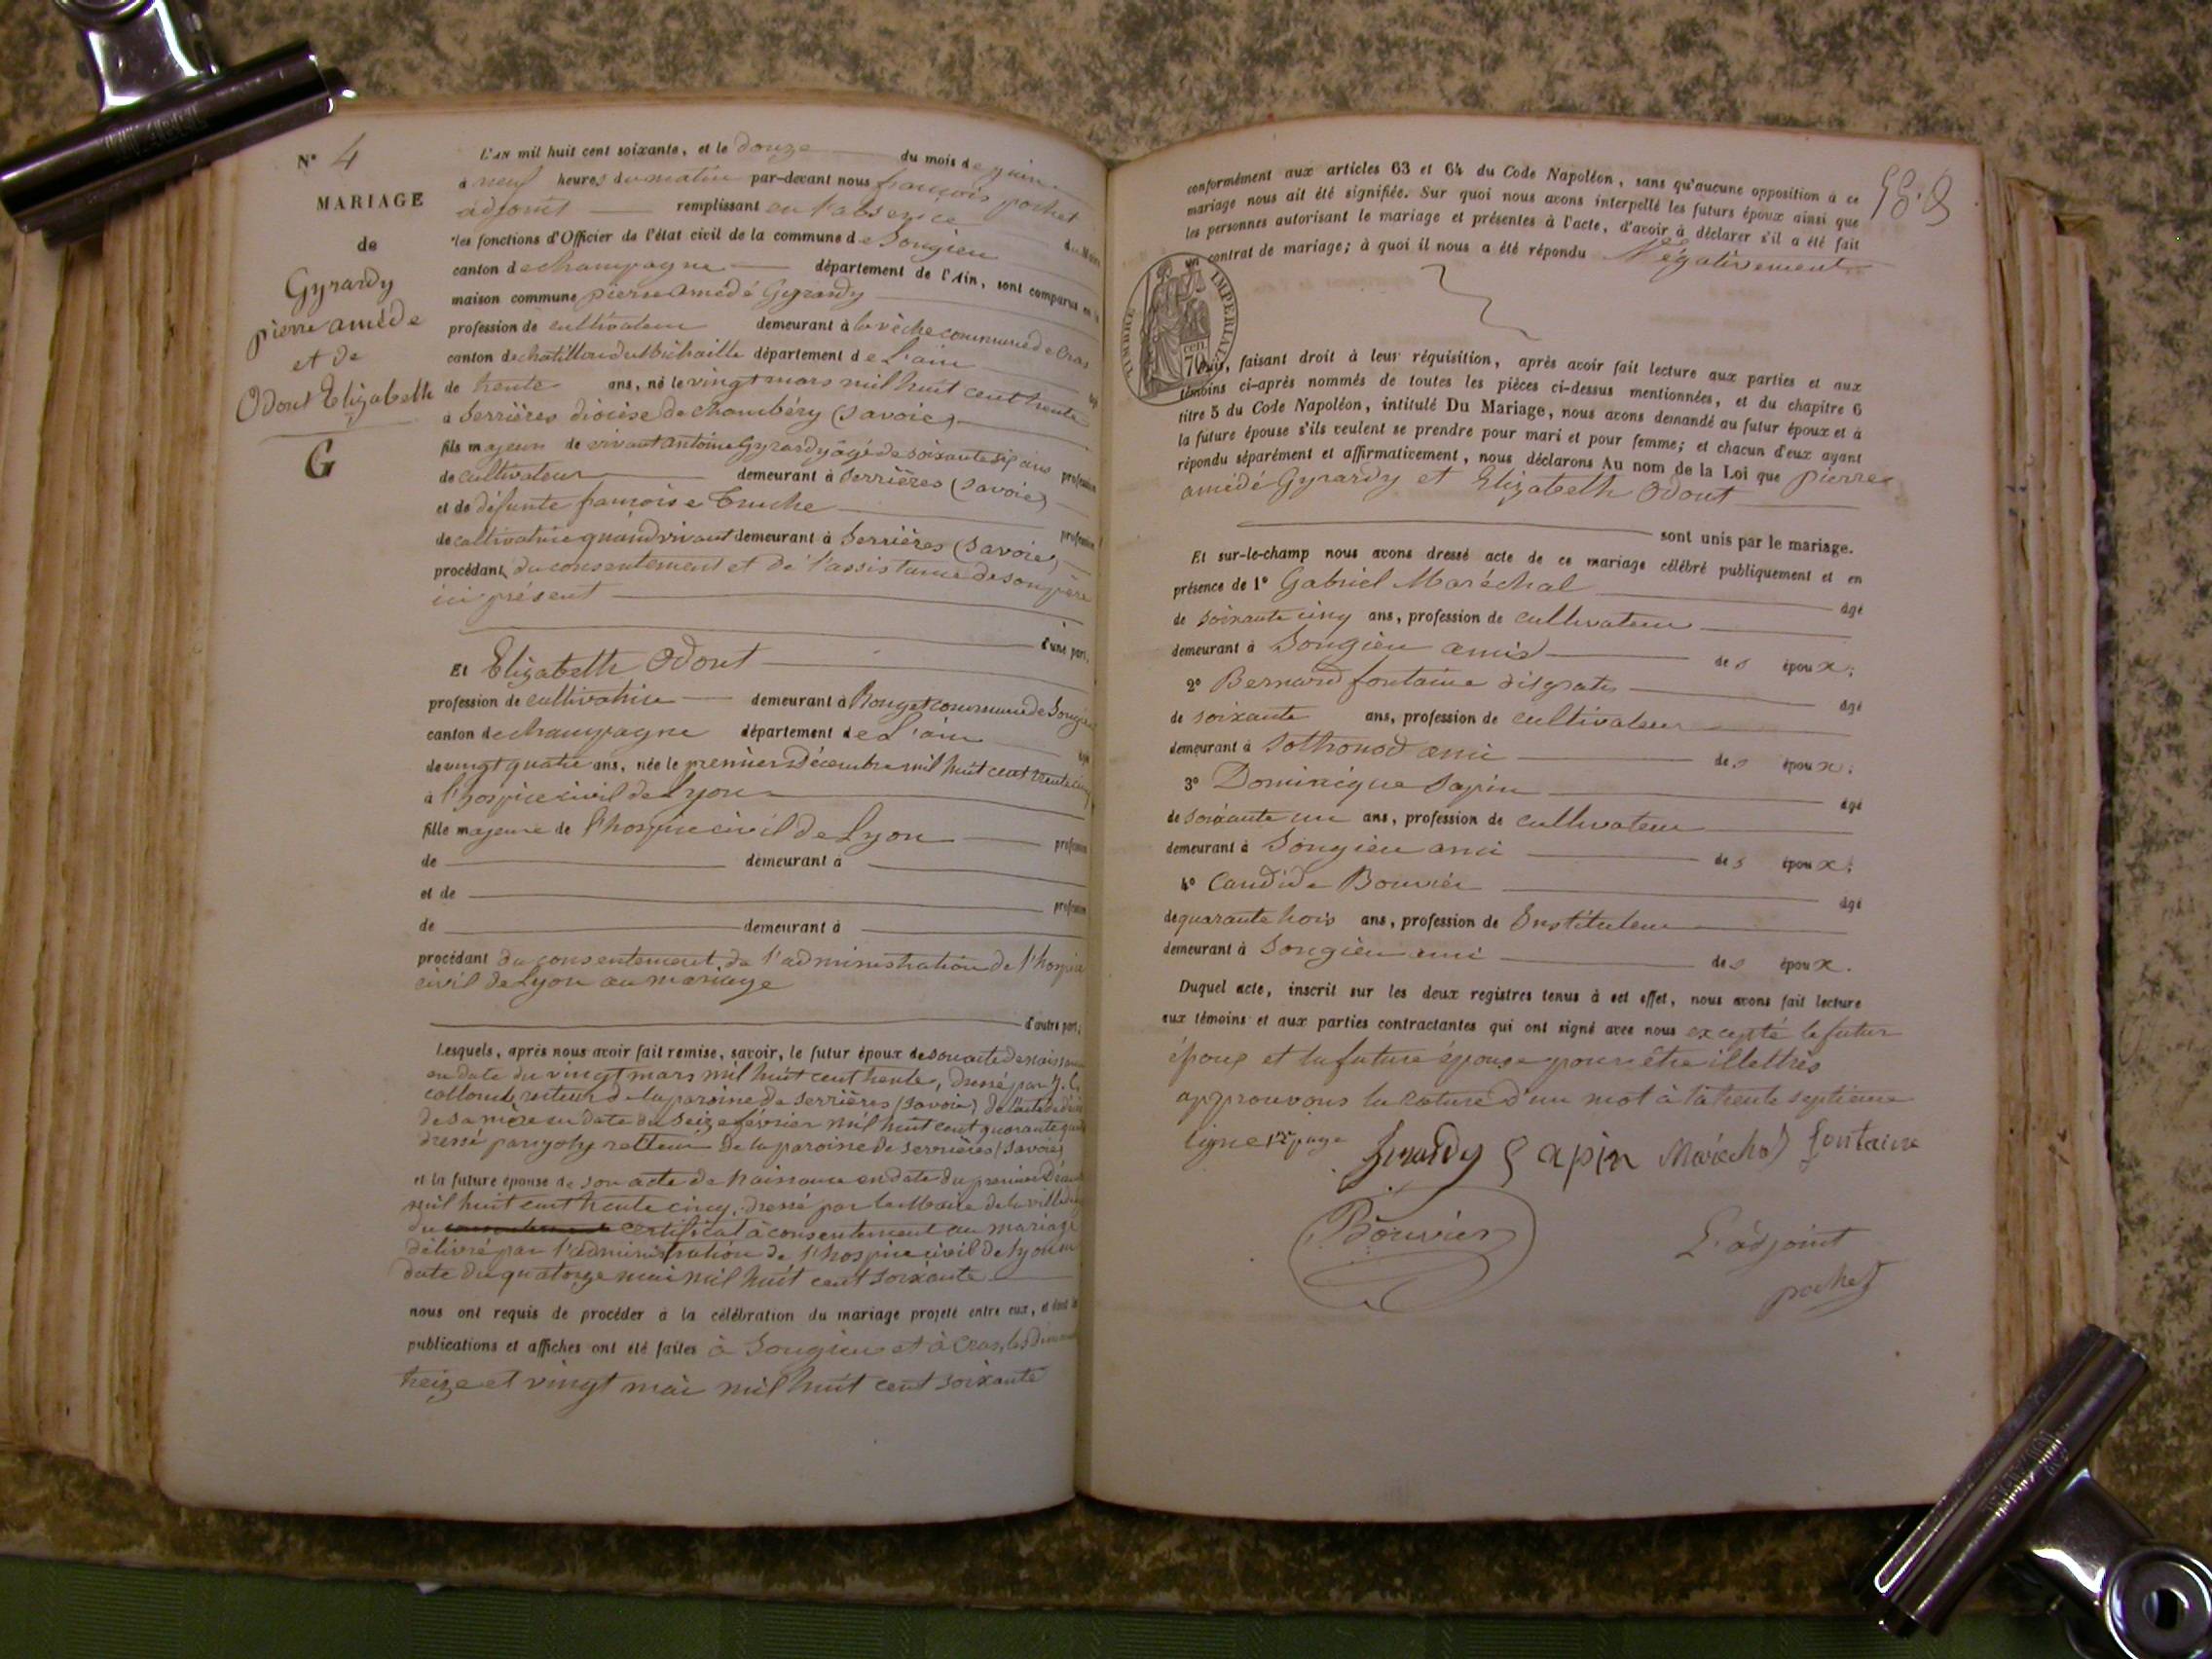 N° 4
MARIAGE
de
Gyrardy
pierre amédé
et de
Odout Elizabeth
G
L'AN mil huit cent soixante, et le douze du mois de juin
à neuf heures du matin par-devant nous françois pochet
adjoint remplissant en l'absence du Maire
les fonctions d'Officier de l'état civil de la commune de Songieu
canton de champagne département de l'Ain, sont comparus en la
maison commune pierre amédé Gyrardy
profession de cultivateur demeurant à la vèche commune de Cras
canton de chatillon de Michaille département de L'ain âgé
de trente ans, né le vingt mars mil huit cent trente
à Serrières diocèse de chambéry (Savoie)
fils majeur de vivant antoine Gyrardy âgé de soixante six ans profession
de cultivateur demeurant à Serrières (Savoie)
et de défunte françoise Truche profession
de cultivatrice quand vivait demeurant à Serrières (Savoie)
procédant du consentement et de l'assistance de son père
ici présent
d'une part,
Et Elizabeth Odout
profession de cultivatrice demeurant à Rouget commune de Songieu
canton de champagne département de L'ain âgée
de vingt quatre ans, née le premier Décembre mil huit cent trente cinq
à l'hospice civil de Lyon
fille majeure de l'hospice civil de Lyon profession
de demeurant à
et de profession
de demeurant à
procédant du consentement de l'administration de l'hospice
civil de Lyon au mariage
d'autre part;
Lesquels, après nous avoir fait remise, savoir, le futur époux de son acte de naissance
en date du vingt mars mil huit cent trente, dressé par
collomb recteur de la paroisse de Serrières (Savoie) de l'acte de décès
de sa mère en date du seize février mil huit cent quarante
dressé par recteur de la paroisse de Serrières (Savoie)
et la future épouse de son acte de naissance en date du premier Décembre
mil huit cent trente cinq, dressé par le Maire de la ville de
du consentement certificat à consentement au mariage
délivré par l'administration de l'hospice civil de Lyon en
date du quatorze mai mil huit cent soixante
nous ont requis de procéder à la célébration du mariage projeté entre eux, et dont les
publications et affiches ont été faites à Songieu et à Cras, les dimanches
treize et vingt mai mil huit cent soixante
conformément aux articles 63 et 64 du Code Napoléon, sans qu'aucune opposition à ce
mariage nous ait été signifiée. Sur quoi nous avons interpellé les futurs époux ainsi que
les personnes autorisant le mariage et présentes à l'acte, d'avoir à déclarer s'il a été fait
un contrat de mariage; à quoi il nous a été répondu Négativement
TIMBRE IMPERIAL
70 cen
Puis, faisant droit à leur réquisition, après avoir fait lecture aux parties et aux
témoins ci-après nommés de toutes les pièces ci-dessus mentionnées, et du chapitre 6
titre 5 du Code Napoléon, intitulé Du Mariage, nous avons demandé au futur époux et à
la future épouse s'ils veulent se prendre pour mari et pour femme; et chacun d'eux ayant
répondu séparément et affirmativement, nous déclarons Au nom de la Loi que pierre
amédé Gyrardy et Elizabeth Odout
sont unis par le mariage.
Et sur-le-champ nous avons dressé acte de ce mariage célébré publiquement et en
présence de 1° Gabriel Maréchal âgé
de soixante cinq ans, profession de cultivateur
demeurant à Songieu amis des époux;
2° Bernard fontaine disgratis âgé
de soixante ans, profession de cultivateur
demeurant à Sothonod ami des époux;
3° Dominique Sapin âgé
de soixante un ans, profession de cultivateur
demeurant à Songieu ami des époux;
4° Candide Bouvier âgé
de quarante trois ans, profession de Instituteur
demeurant à Songieu ami des époux.
Duquel acte, inscrit sur les deux registres tenus à cet effet, nous avons fait lecture
aux témoins et aux parties contractantes qui ont signé avec nous excepté le futur
époux et la future épouse pour être illettrés
approuvons la rature d'un mot à la trente septième
ligne 1re page
Girardy Sapin Maréchal fontaine
Bouvier
L'adjoint
pochet